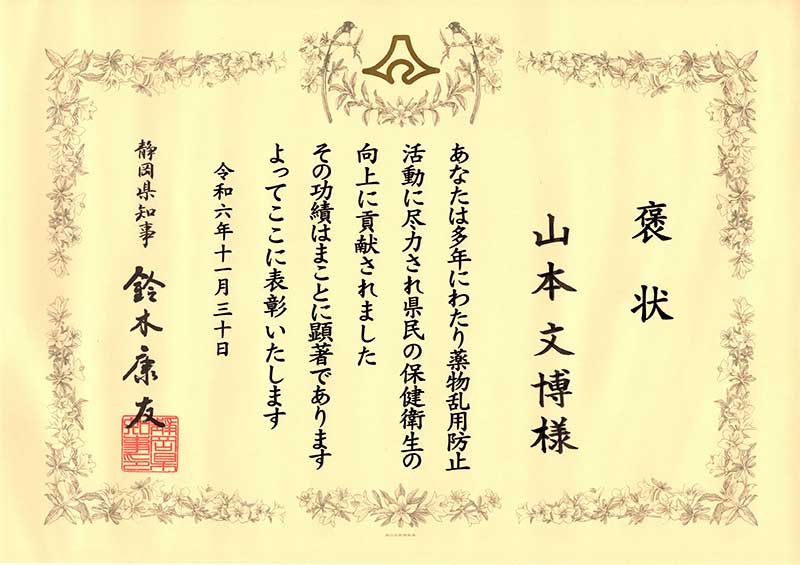 褒状
山本文博様
あなたは多年にわたり薬物乱用防止
活動に尽力され県民の保健衛生の
向上に貢献されました
その功績はまことに顕著であります
よってここに表彰いたします
令和六年十一月三十日
静岡県知事 鈴木康友
静岡県知事之印